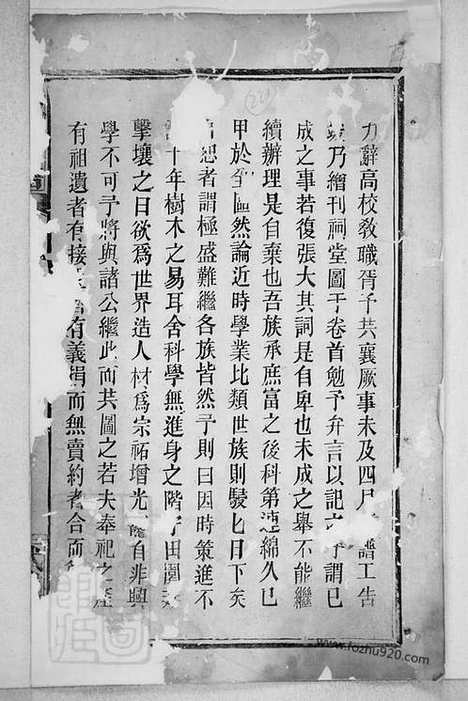 力辭高校敎職胥予共襄厥事未及四月譜工吿
乃繪刊祠堂圖于卷首勉予弁言以記之予謂已
成之事若復張大其詞是自卑也未成之舉不能繼
續辦理是自棄也吾族承庶富之後科第連綿久已
甲於全區然論近時學業比類世族則駸乜日下矣
恕者謂極盛難繼各族皆然予則曰因時策進不
十年樹木之易耳舍科學無進身之階予田園
擊壤之日欲爲世界造人材爲宗祐增光自非興
學不可予將與諸公繼此而共圖之若夫奉祀之
有祖遺者有接有義捐而無賣約者合而
www.fozhu920.com